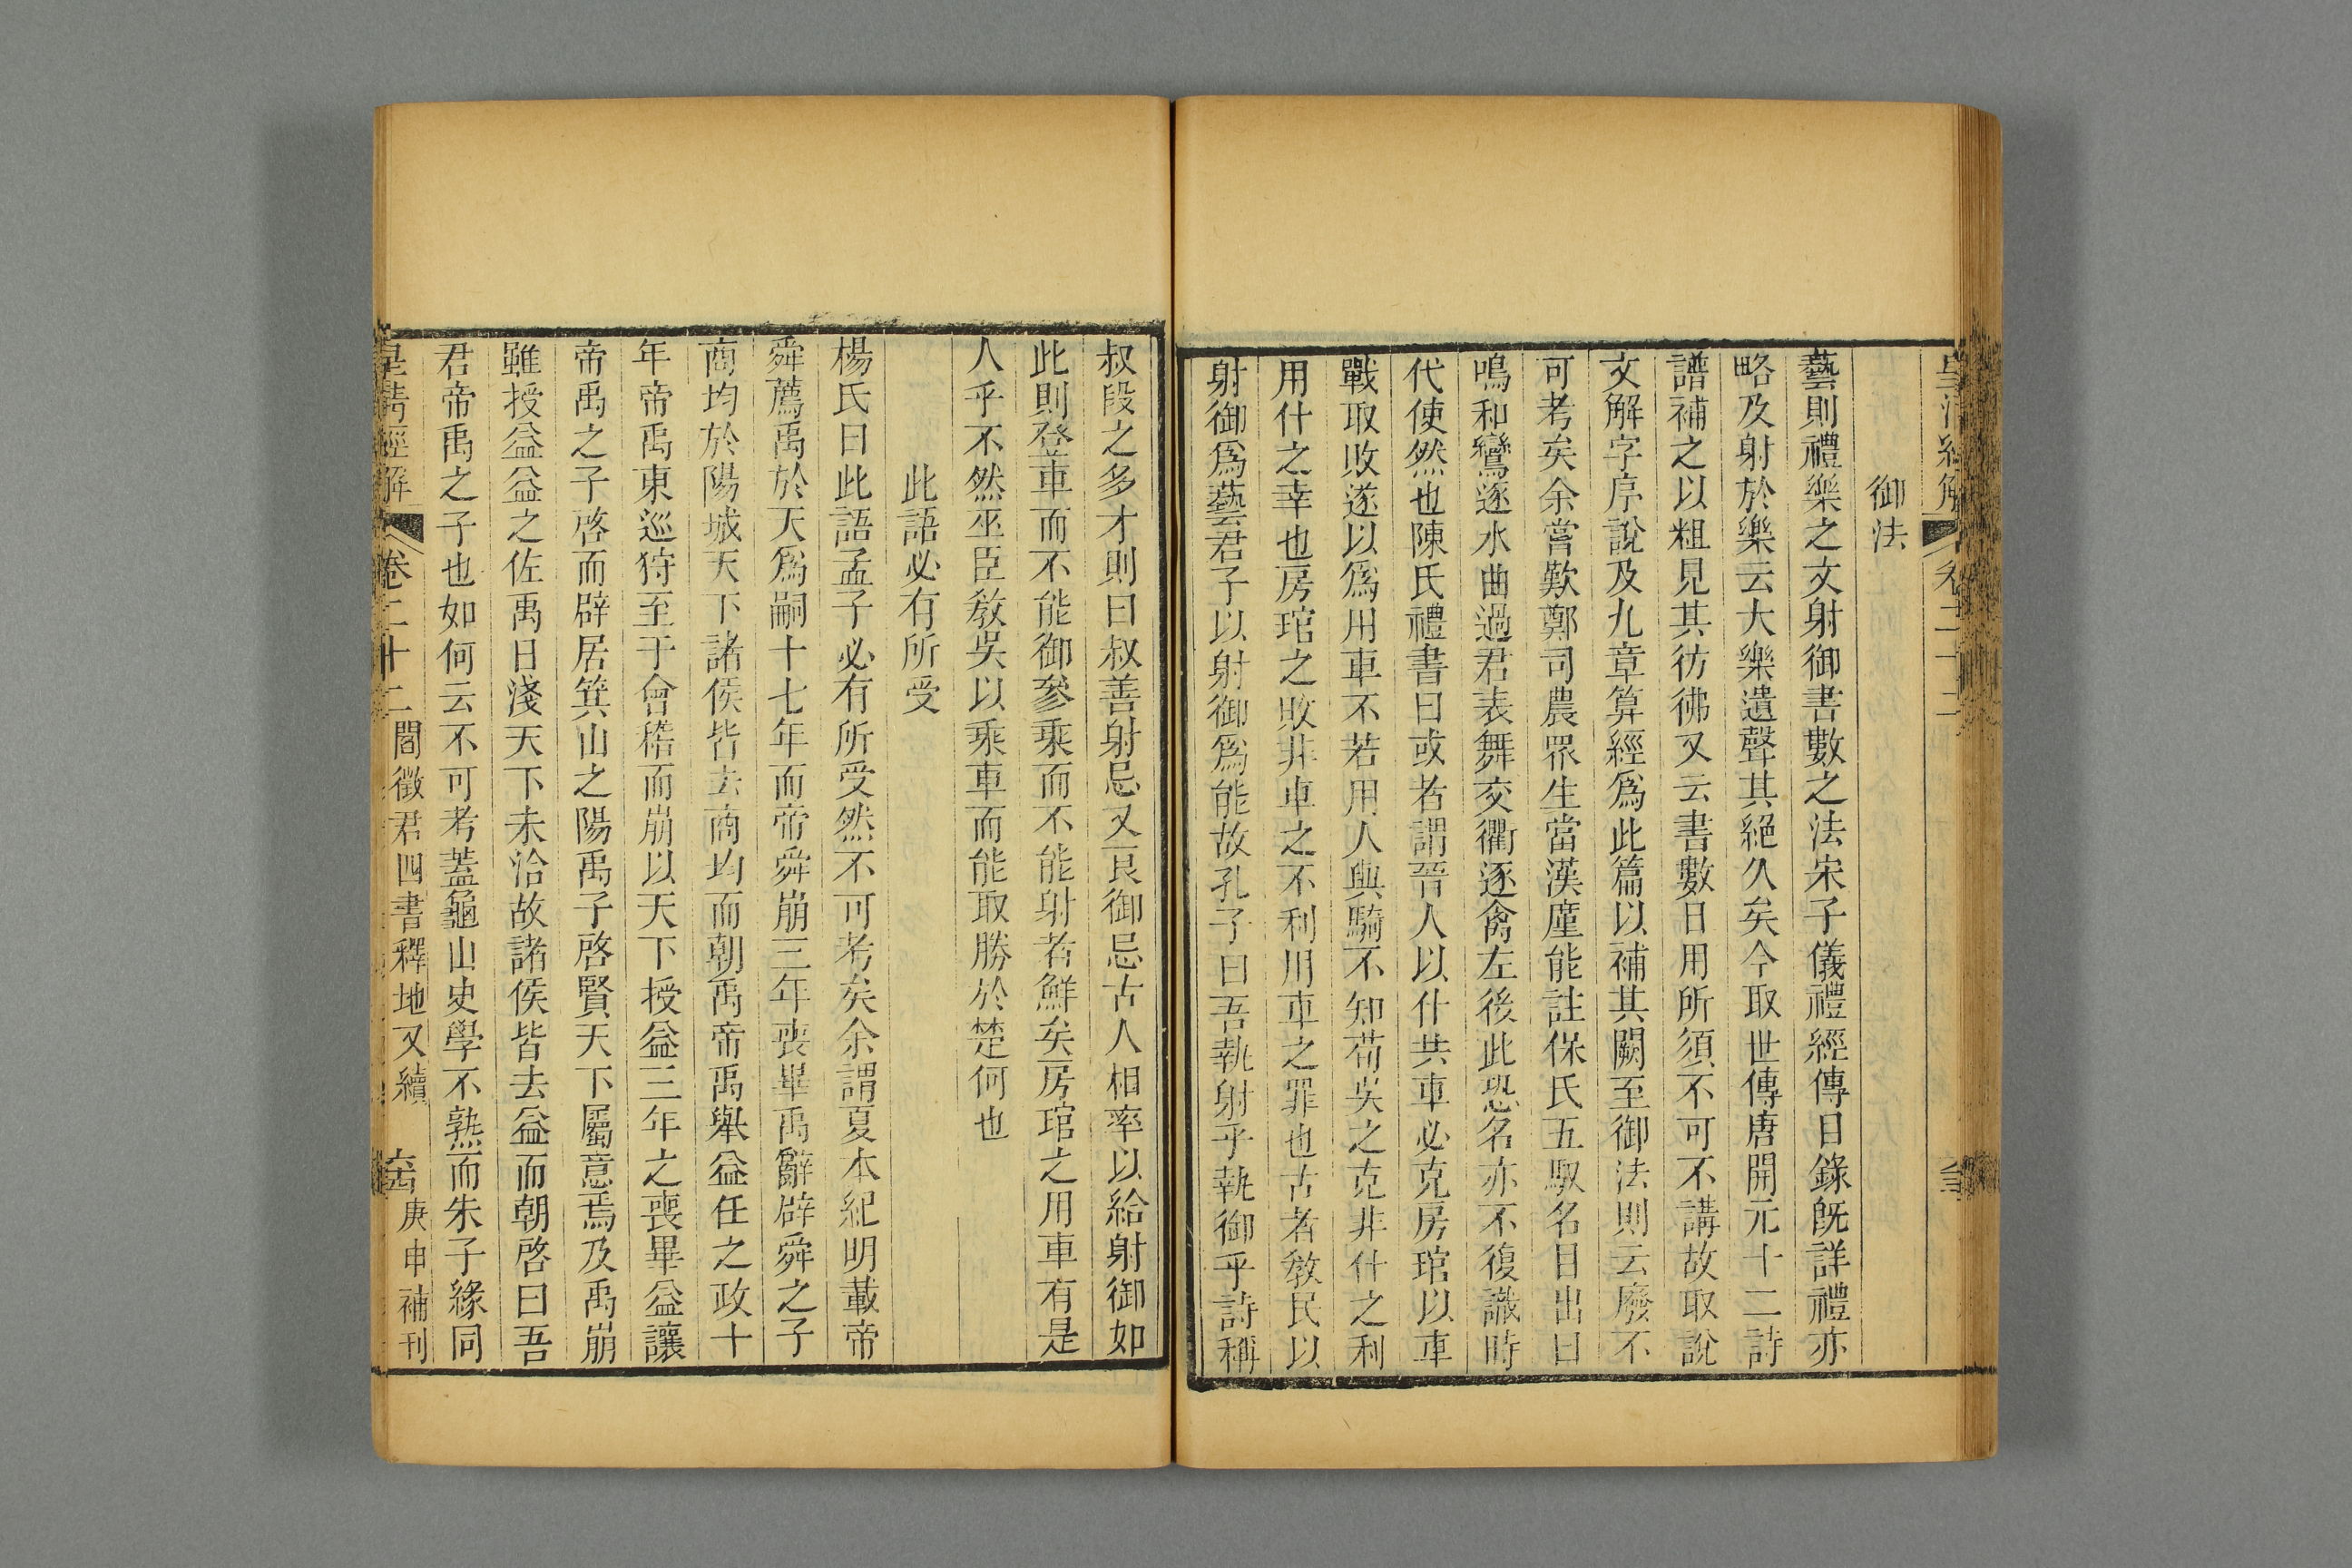 御法
藝則禮樂之文射御書數之法宋子儀禮經傳目錄旣詳禮亦
略及射於樂云大樂遺聲其絕久矣今取世傳唐開元十二詩
譜補之以粗見其彷彿又云書數日用所須不可不講故取說
文解字序說及九章算經爲此篇以補其闕至御法則云廢不
可考矣余嘗歎鄭司農眾生當漢廑能註保氏五馭名目出曰
鳴和鸞逐水曲過君表舞交衢逐禽左後此恐名亦不復識時
代使然也陳氏禮書曰或者謂晉人以什共車必克房琯以車
戰取敗遂以爲用車不若用人與騎不知荀吳之克非什之利
用什之幸也房琯之敗非車之不利用車之罪也古者教民以
射御爲藝君子以射御爲能故孔子曰吾執射乎執御乎詩稱
叔段之多才則曰叔善射忌又良御忌古人相率以給射御如
此則登車而不能御參乘而不能射者鮮矣房琯之用車有是
人乎不然巫臣敎吳以乘車而能取勝於楚何也
此語必有所受
楊氏曰此語孟子必有所受然不可考矣余謂夏本紀明載帝
舜薦禹於天爲嗣十七年而帝舜崩三年喪畢禹辭辟舜之子
商均於陽城天下諸侯皆去商均而朝禹帝禹舉益任之政十
年帝禹東巡狩至于會稽而崩以天下授益三年之喪畢益讓
帝禹之子啓而辟居箕山之陽禹子啓賢天下屬意焉及禹崩
雖授益益之佐禹日淺天下未洽故諸侯皆去益而朝啓曰吾
君帝禹之子也如何云不可考蓋龜山史學不熟而朱子緣同
皇淸經解 卷二十二 閻徵君四書釋地又續 庚申補刊